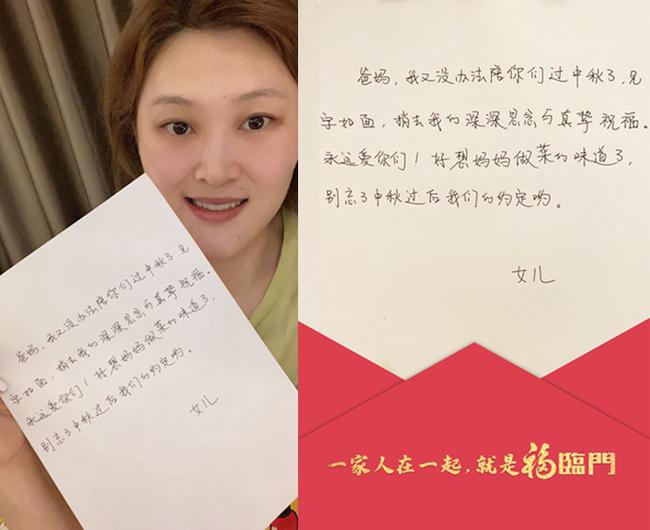 爸妈，我又没办法陪你们过中秋了，见
字如面，捎去我的深深思念与真挚祝福。
永远爱你们！好想妈妈做菜的味道了，
别忘了中秋过后我们的约定哟。
女儿
爸妈，我又没办法陪你们过中秋了，见
字如面，捎去我的深深思念与真挚祝福。
永远爱你们！好想妈妈做菜的味道了，
别忘了中秋过后我们的约定哟。
女儿
一家人在一起，就是福臨門